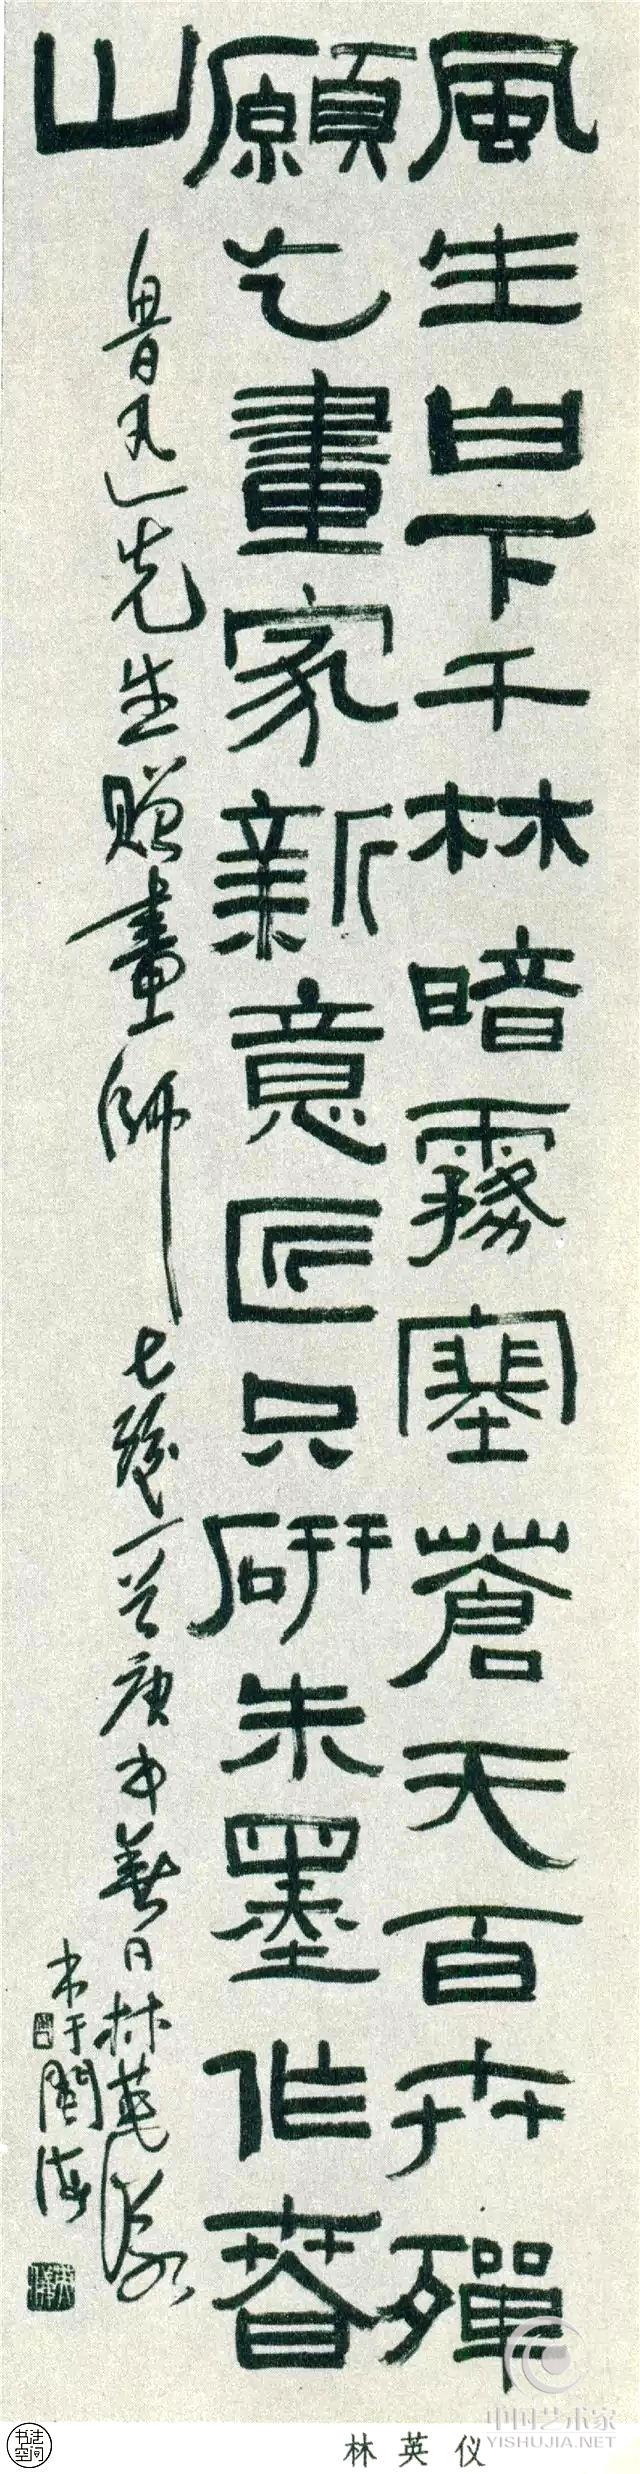 風生白下千林暗霧塞蒼天百卉殫
願乞畫家新意匠只研朱墨作春
山
魯迅先生贈畫師
七絕一首庚申春日林英儀
書于閩海
书法空间
林英仪
中国艺术家
YISHUJIA.NET